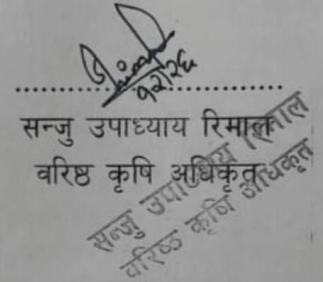 १२।२६
सन्जु उपाध्याय रिमाल
वरिष्ठ कृषि अधिकृत
सन्जु उपाध्याय रिमाल
वरिष्ठ कृषि अधिकृत